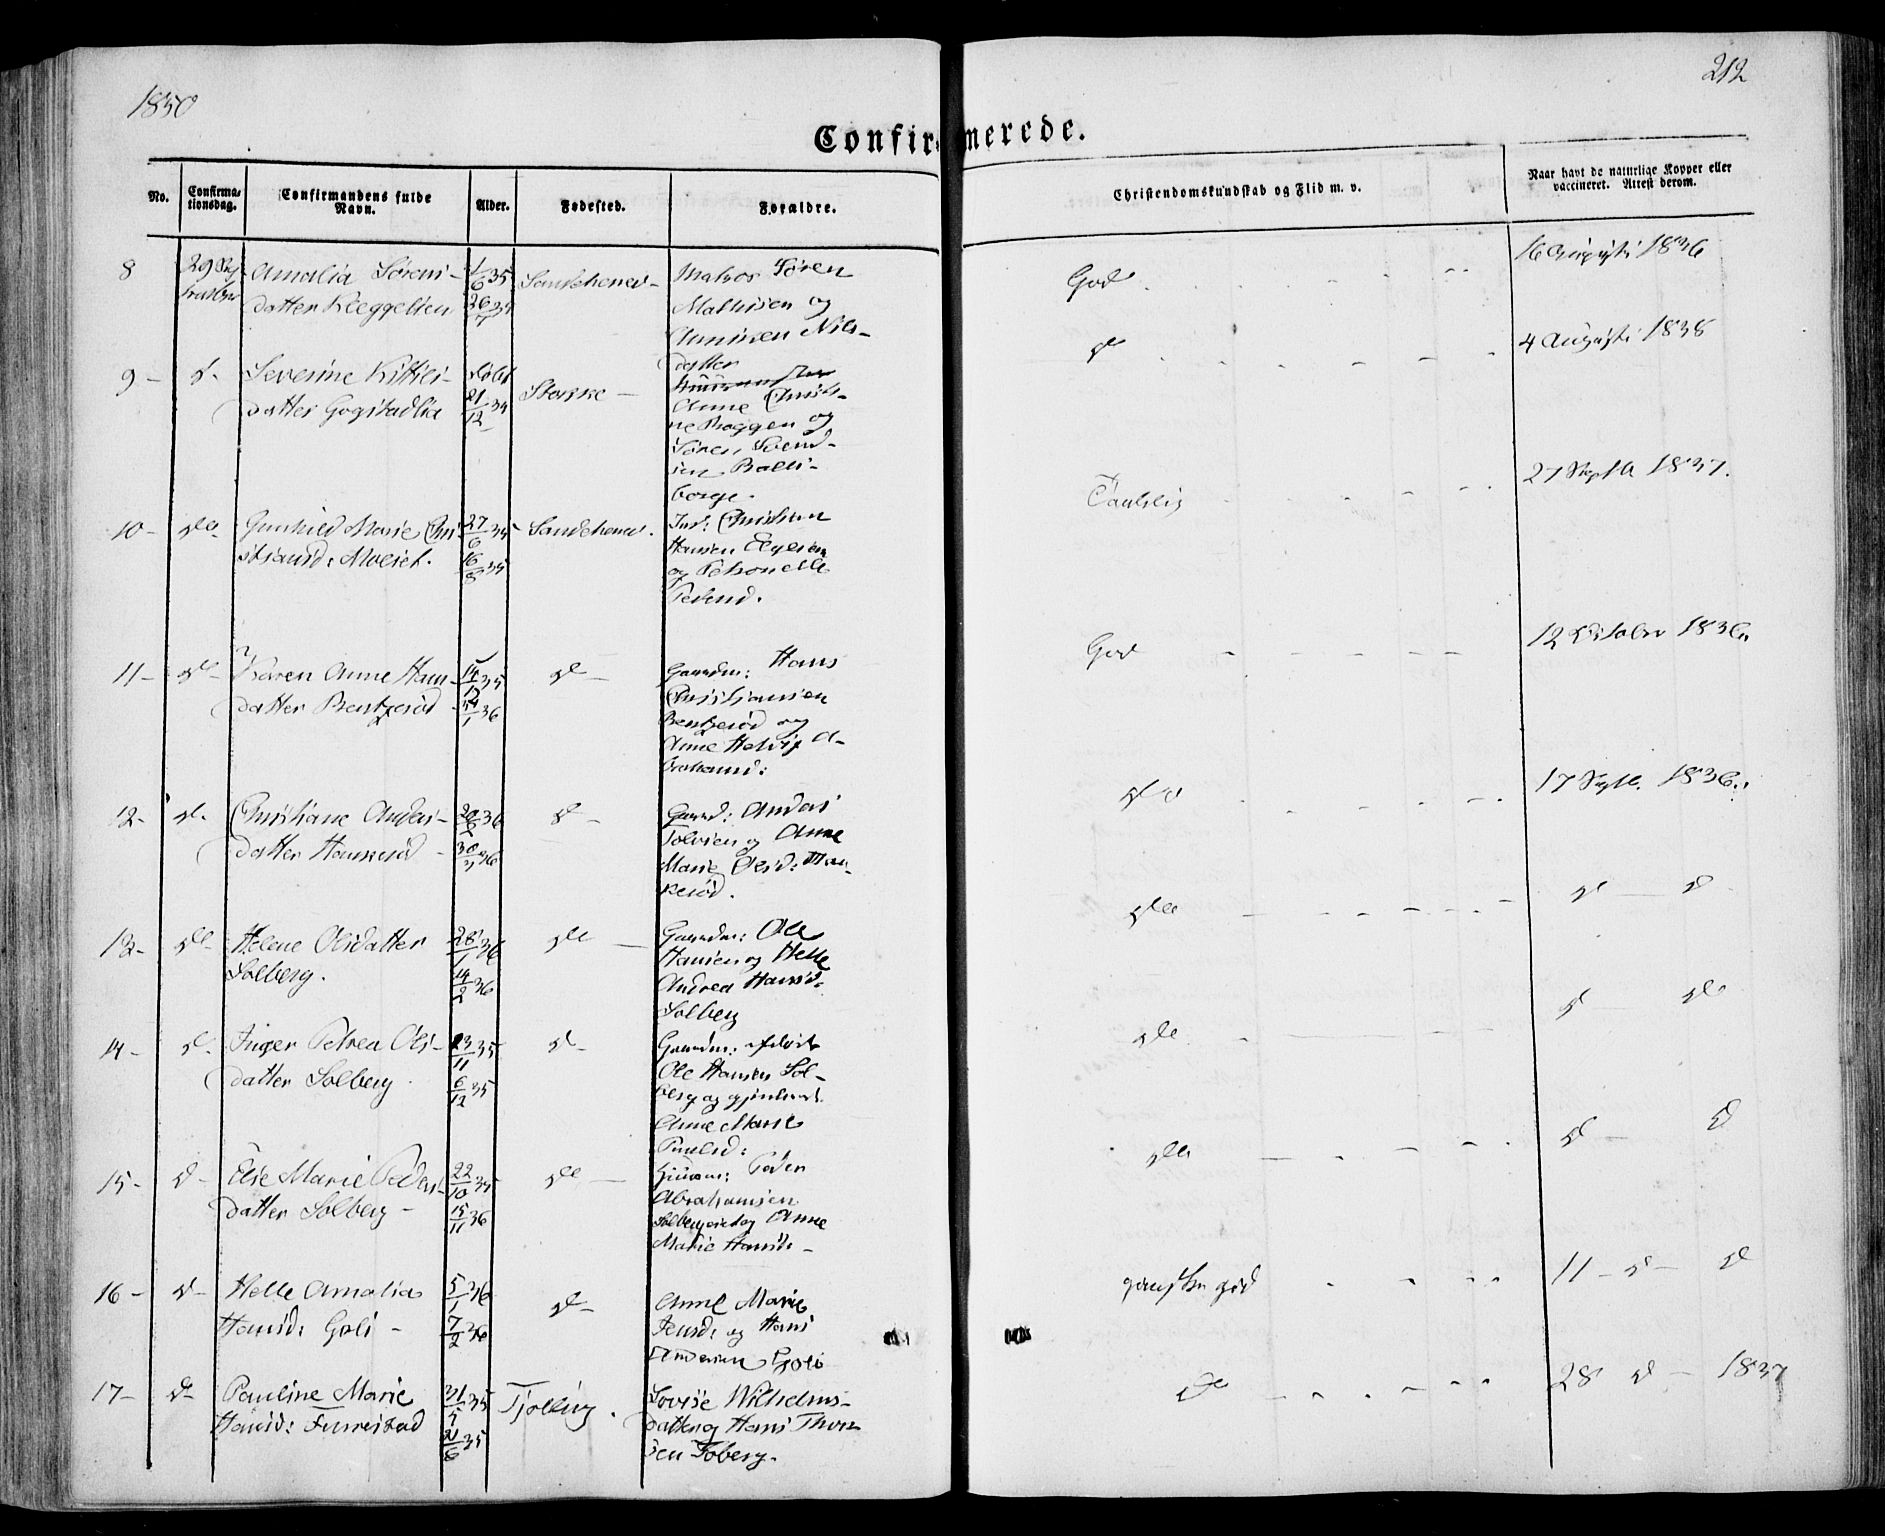 1850
212
Confirmerede.
No.
Confirma-
tionsdag.
Confirmandens fulde
Navn.
Alder.
Fødested.
Forældre.
Christendomskundskab og Flid m. v.
Naar havt de naturlige Kopper eller
vaccineret. Attest derom.
8
29
Amalia Sørens-
datter Kleggelien
1/6 35
26/7 35
Sandeherred
Matros Søren
Mathisen og
Nils-
datter
God
16 Augusti 1836
9 -
d.
Severine Kittils-
datter Gogstadlia
døbt
21/12 34
Stokke -
Anne Christi-
ne Roggen og
Søren Svend-
sen
borge.
do
4 Augusti 1838
10 -
do.
Gunhild Marie Chri-
stiansd: Moeset.
27/6 35
16/8 35
Sandeherred.
Ind: Christian
Hansen
og Petronelle
Pedersd.
Taalelig
27 Septb 1837.
11 -
do -
Karen Anne Hans-
datter Bentzerød
14/12 35
1 36
do -
Gaardm: Hans
Christiansen
Bentzerød og
Anne Helvig A-
brahamsd:
God
12 October 1836.
12 -
d.
Christiane Anders-
datter Haukerød -
36
36
d -
Gaard: Anders
Tolvsen og Anne
Marie Olesd: Hau-
kerød.
do
17 Septb. 1836.
13 -
do -
Helene Olsdatter
Solberg.
28/1 36
14/2 36
do -
Gaardm: Ole
Hansen og Helle
Andrea Hansd.
Solberg
do
d - d
14 -
d.
Inger Petrea Ols-
datter Solberg.
23/11 35
6/12 35
d -
Gaardm:
Ole Hansen Sol-
berg og
Anne Marie
Paulsd:
do
d - do
15 -
d -
Else Marie Peders-
datter Solberg -
22/10 35
15/11 36
do -
Huusm: Peder
Abrahamsen
Solbergeiet og Anne
Marie Hansd: -
do
d - d
16 -
d -
Helle Amalia
Hansd: Goli -
5/1 36
7/2 36
d -
Anne Marie
Jensd: og Hans
Andersen Goli
ganske god
11 - d - d
17 -
d -
Pauline Marie
Hansd: Furrestad
31/5 35
21/6 35
Tjølling.
Lovise Wilhelms-
datter og Hans Thor-
sen Foberg.
do
28 d - 1837